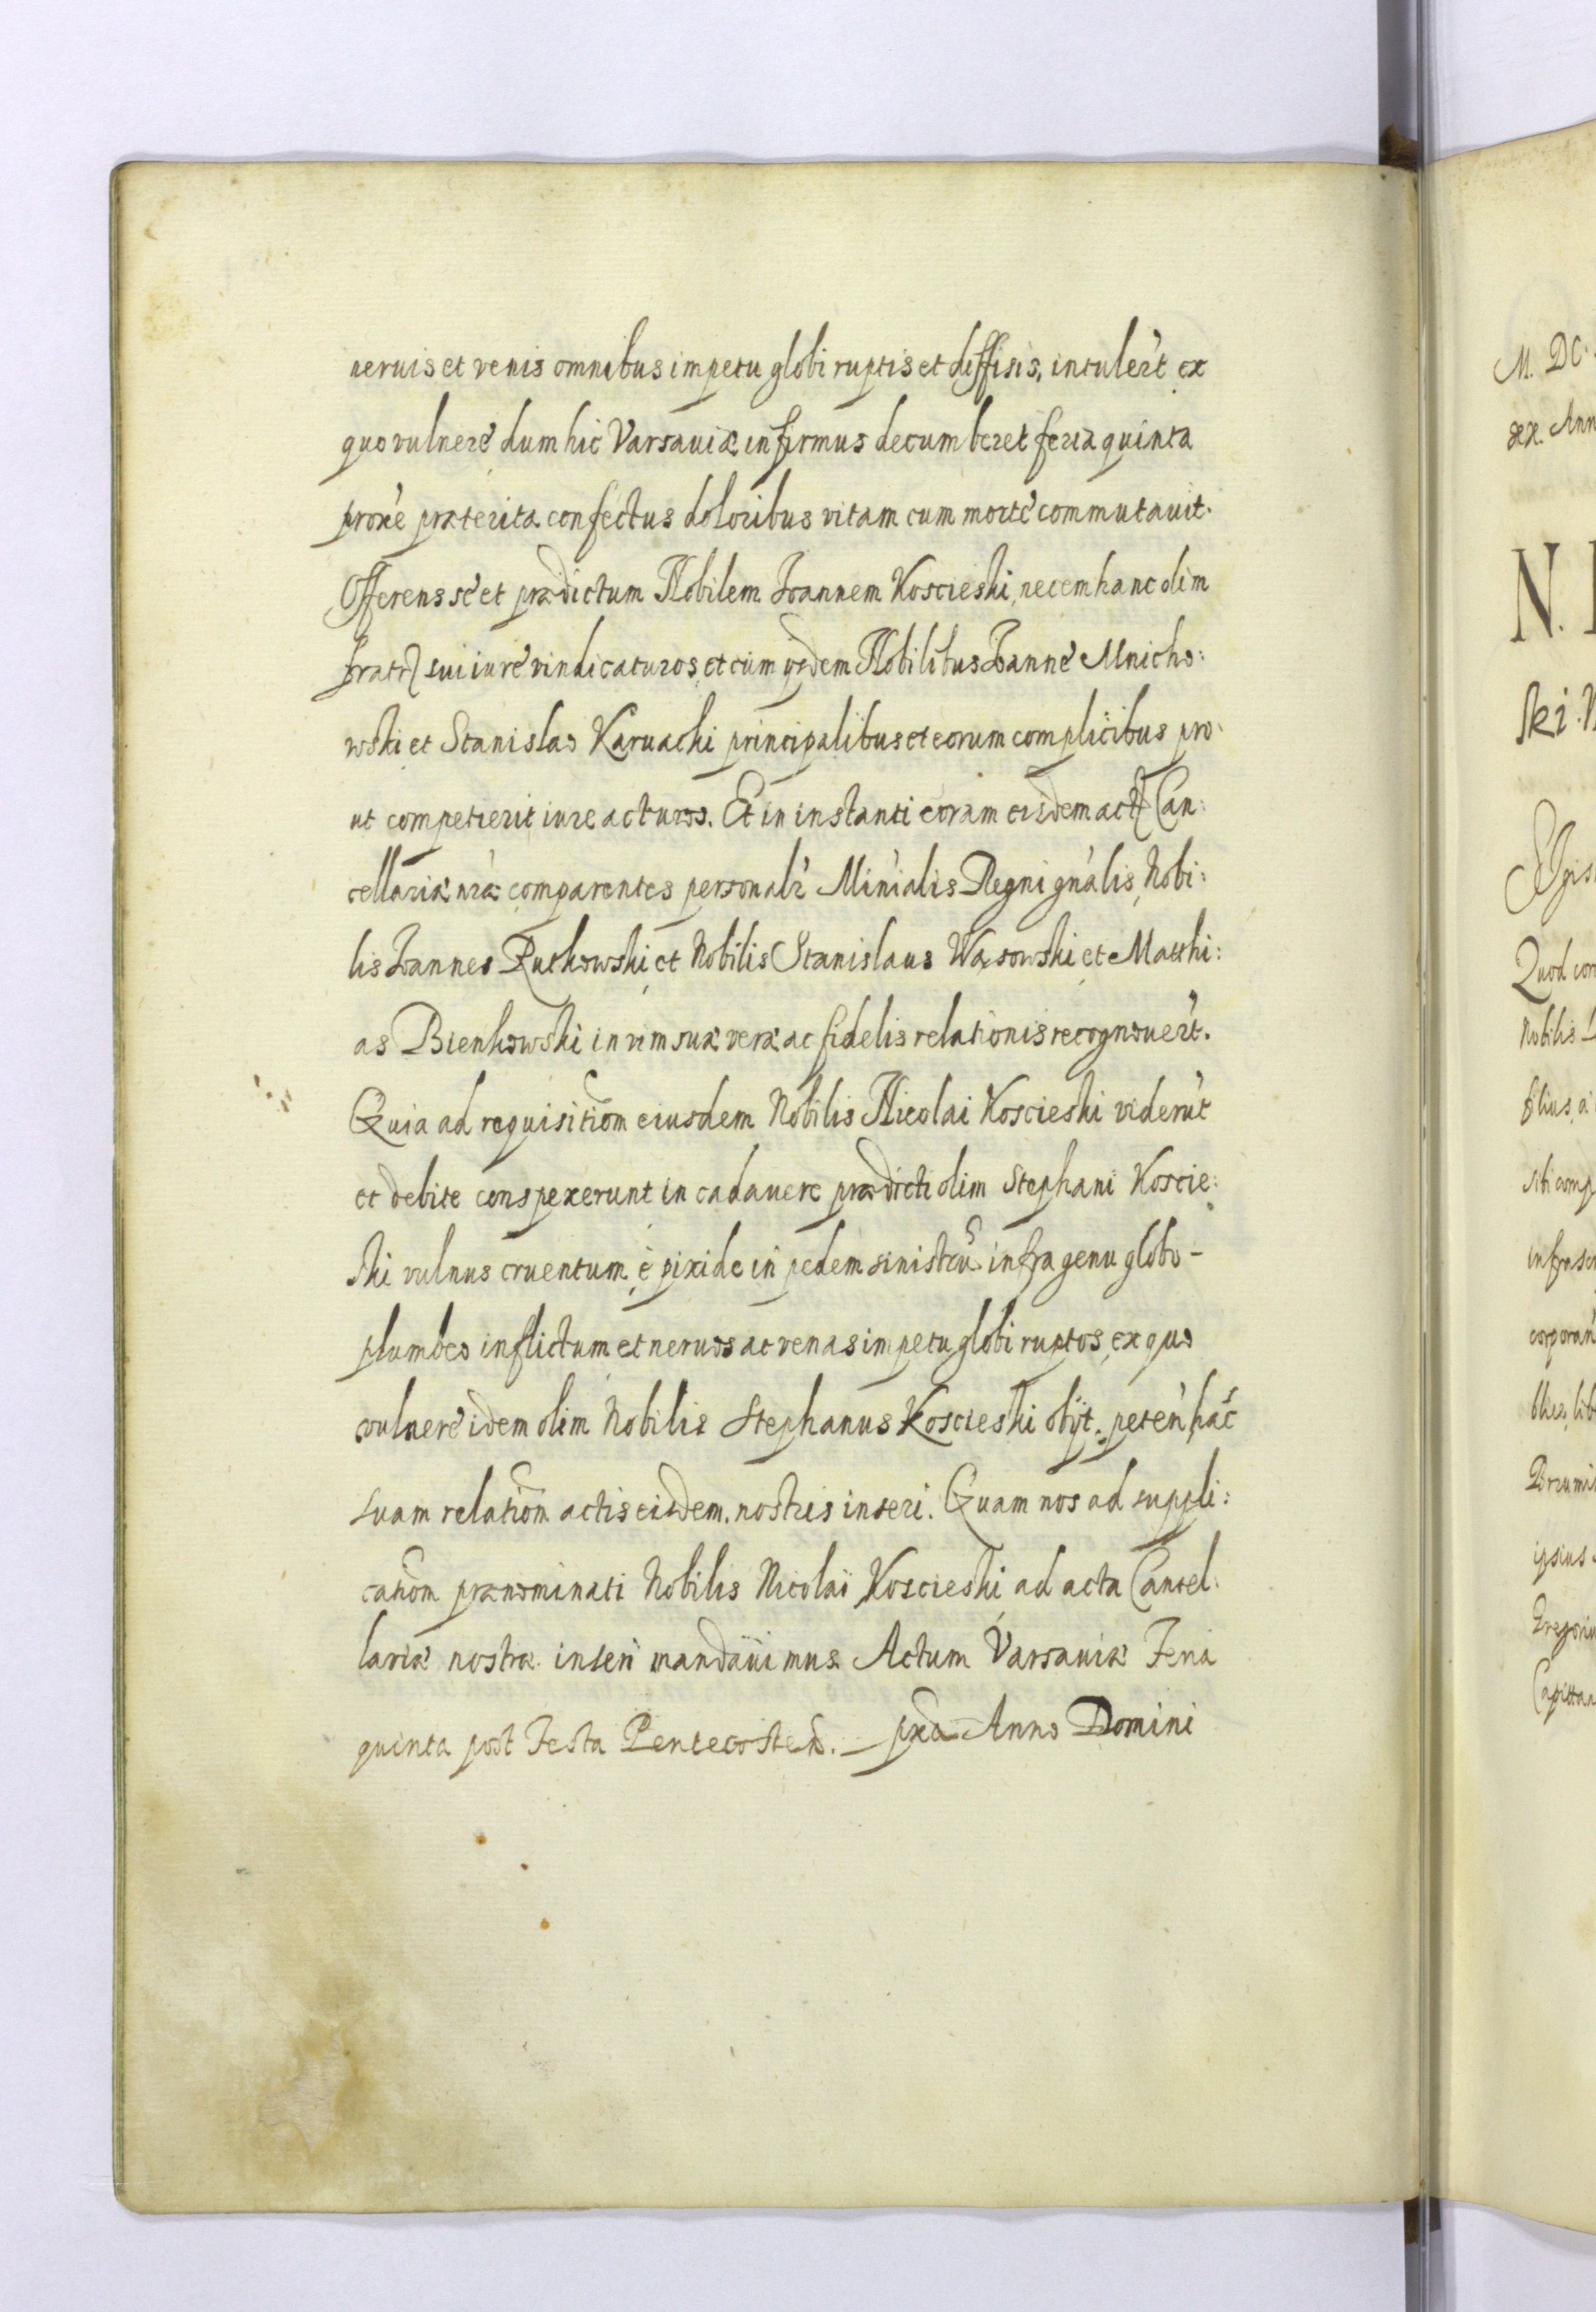 neruis et venis omnibus impetu globi ruptis et diffisis, intulert́ ex
quo vulnere dum hic Varsauiæ infirmus decumberet feria quinta
proxe præterita confectus doloribus vitam cum morte commutauit.
Offerens se et prædictum Nobilem Joannem Koscieski, necem hanc olim
fratris sui iure vindicaturos, et cum ijsdem Nobilibus Joanne Mnicho:
wski et Stanislao Karuacki principalibus et eorum complicibus pro:
ut competierit iure acturos. Et in instanti coram eisdem actis Can:
cellariæ nræ comparentes personalr Minialis Regni gnalis, Nobi:
lis Joannes Rutkowski, et Nobilis Stanislaus Wąsowski et Matthi:
as Bienkowski in vim suæ veræ ac fidelis relationis recognouert́.
Quia ad requisitiom eiusdem Nobilis Nicolai Koscieski viderut́
et debite conspexerunt in cadauere prædicti olim Stephani Koscie:
ski vulnus cruentum è pixide in pedem sinistrū infra genu globo-
plumbeo inflictum et neruos ac venas impetu globi ruptos, ex quo
vulnere idem olim Nobilis Stephanus Koscieski obijt. peten hac
suam relatiom actis eisdem nostris inseri. Quam nos ad suppli:
catiom prænominati Nobilis Nicolai Koscieski ad acta Cancel:
lariæ nostræ inseri mandauimus Actum Varsauiæ Feria
quinta post Festa Pentecostes. — pxa Anno Domini
M. DC.
sex. Ann
N.
ski. N
Quod con
Nobilis
filius
sibi comp
infrascr
ipsius
Capitan